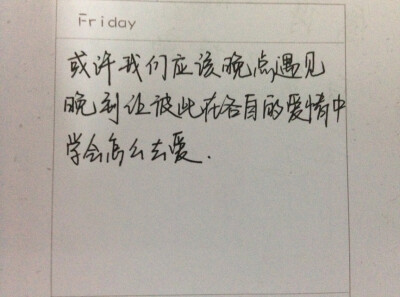 Friday
或许我们应该晚点遇见
晚到让彼此在各自的爱情中
学会怎么去爱.